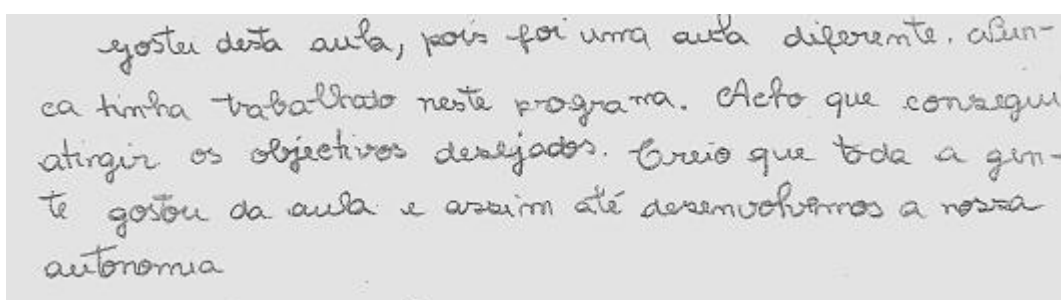 gostei desta aula, pois foi uma aula diferente. Nun-
ca tinha trabalhado neste programa. Acho que consegui
atingir os objectivos desejados. Creio que toda a gen-
te gostou da aula e assim até desenvolvemos a nossa
autonomia